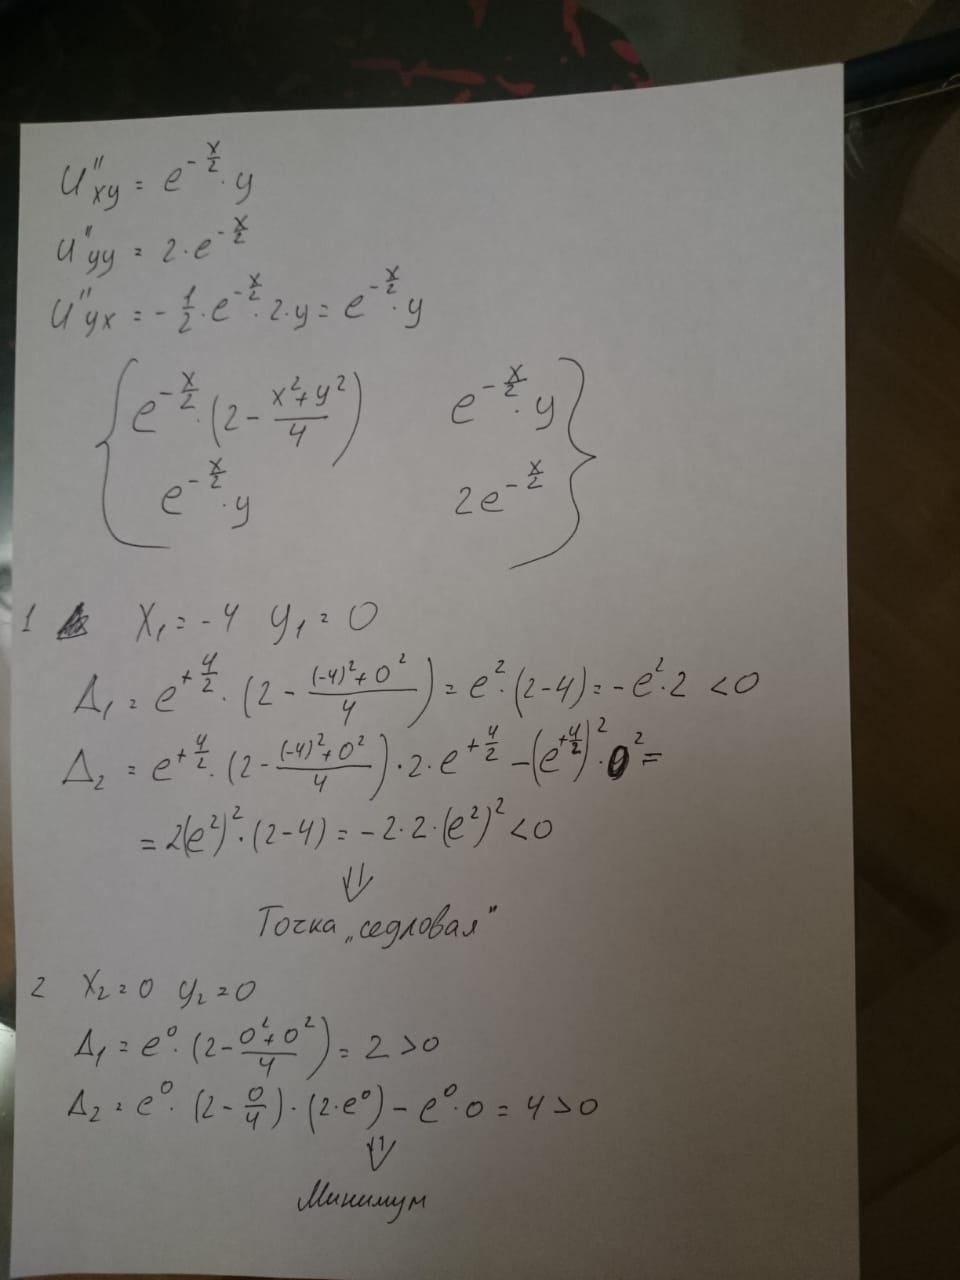 U''xy = e^(-x/2) · y
U''yy = 2 · e^(-x/2)
U''yx = - 1/2 · e^(-x/2) · 2 · y = e^(-x/2) · y
e^(-x/2) · (2 - (x²+y²)/4)    e^(-x/2) · y
e^(-x/2) · y    2e^(-x/2)
1 X₁ = -4 y₁ = 0
Δ₁ = e^(+4/2) · (2 - ((-4)²+0²)/4) = e² · (2-4) = -e² · 2 < 0
Δ₂ = e^(+4/2) · (2 - ((-4)²+0²)/4) · 2 · e^(+4/2) - (e^(+4/2))² · 0² =
= 2(e²)² · (2-4) = -2 · 2 · (e²)² < 0
⇓
Точка „седловая"
2 X₂ = 0 y₂ = 0
Δ₁ = e⁰ · (2 - (0²+0²)/4) = 2 > 0
Δ₂ = e⁰ · (2 - 0/4) · (2 · e⁰) - e⁰ · 0 = 4 > 0
⇓
Минимум